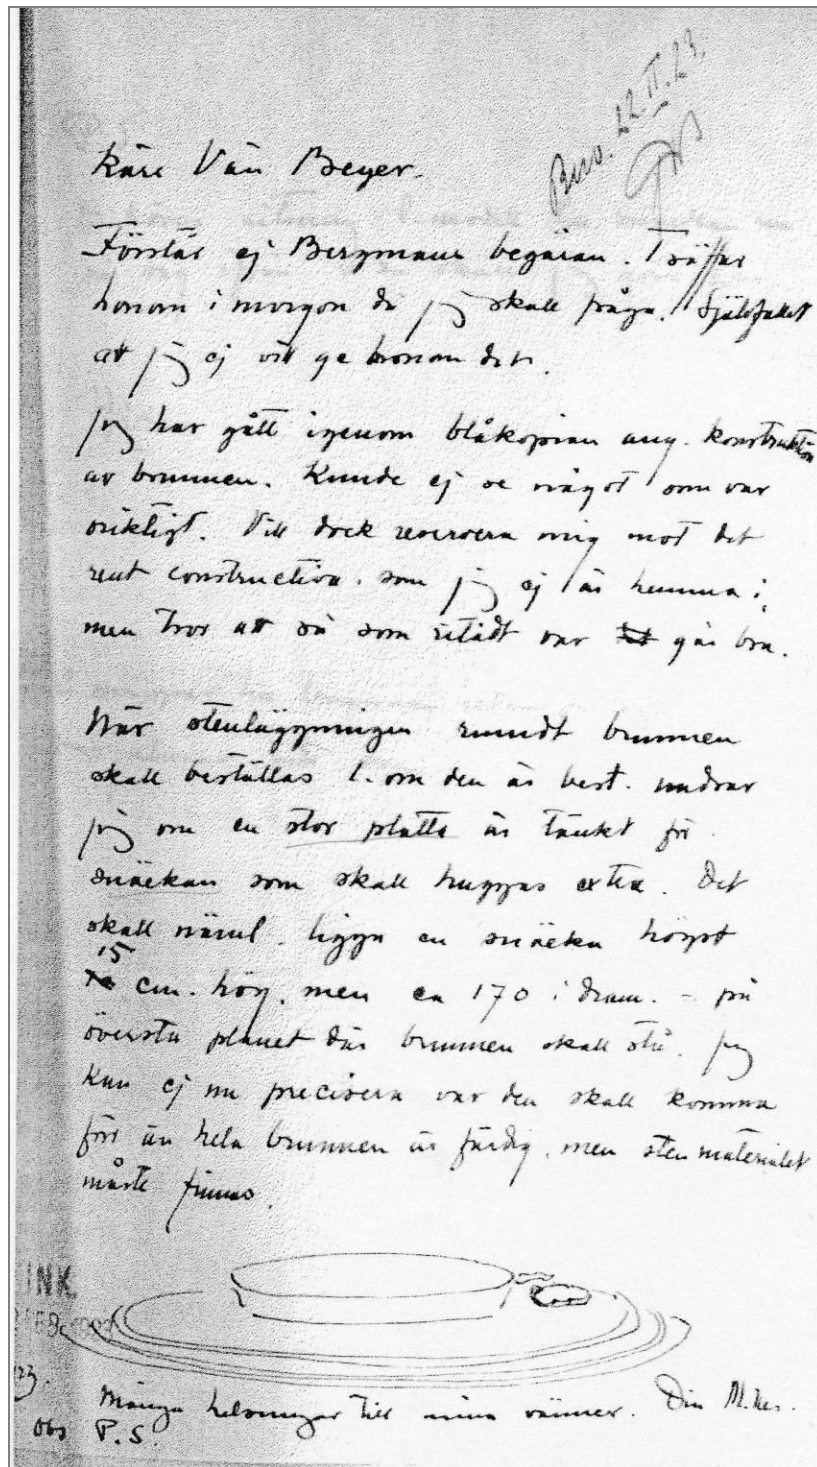 Besv. 22.II.23.
Käre Vän Beyer.
Förstår ej Bergmans begäran. Träffar
honom i morgon då jag skall fråga. Självfallet
att jag ej vill ge honom det.
Jag har gått igenom blåkopian ang. konstruktion
av brunnen. Kunde ej se något som var
oriktigt. Vill dock reservera mig mot det
rent constructiva. som jag ej är hemma i,
men tror att så som ritadt var går bra.
När stenläggningen rundt brunnen
skall beställas l. om den är best. undrar
jag om en stor platta är tänkt för
snäckan som skall huggas extra. Det
skall näml. ligga en snäcka högst
15 cm. hög, men ca 170 i diam. – på
översta planet där brunnen skall stå. Jag
kan ej nu precisera var den skall komma
för än hela brunnen är färdig, men stenmaterialet
måste finnas.
INK.
FEB.
23.
Många helsningar till mina vänner. Din
Obs P.S.